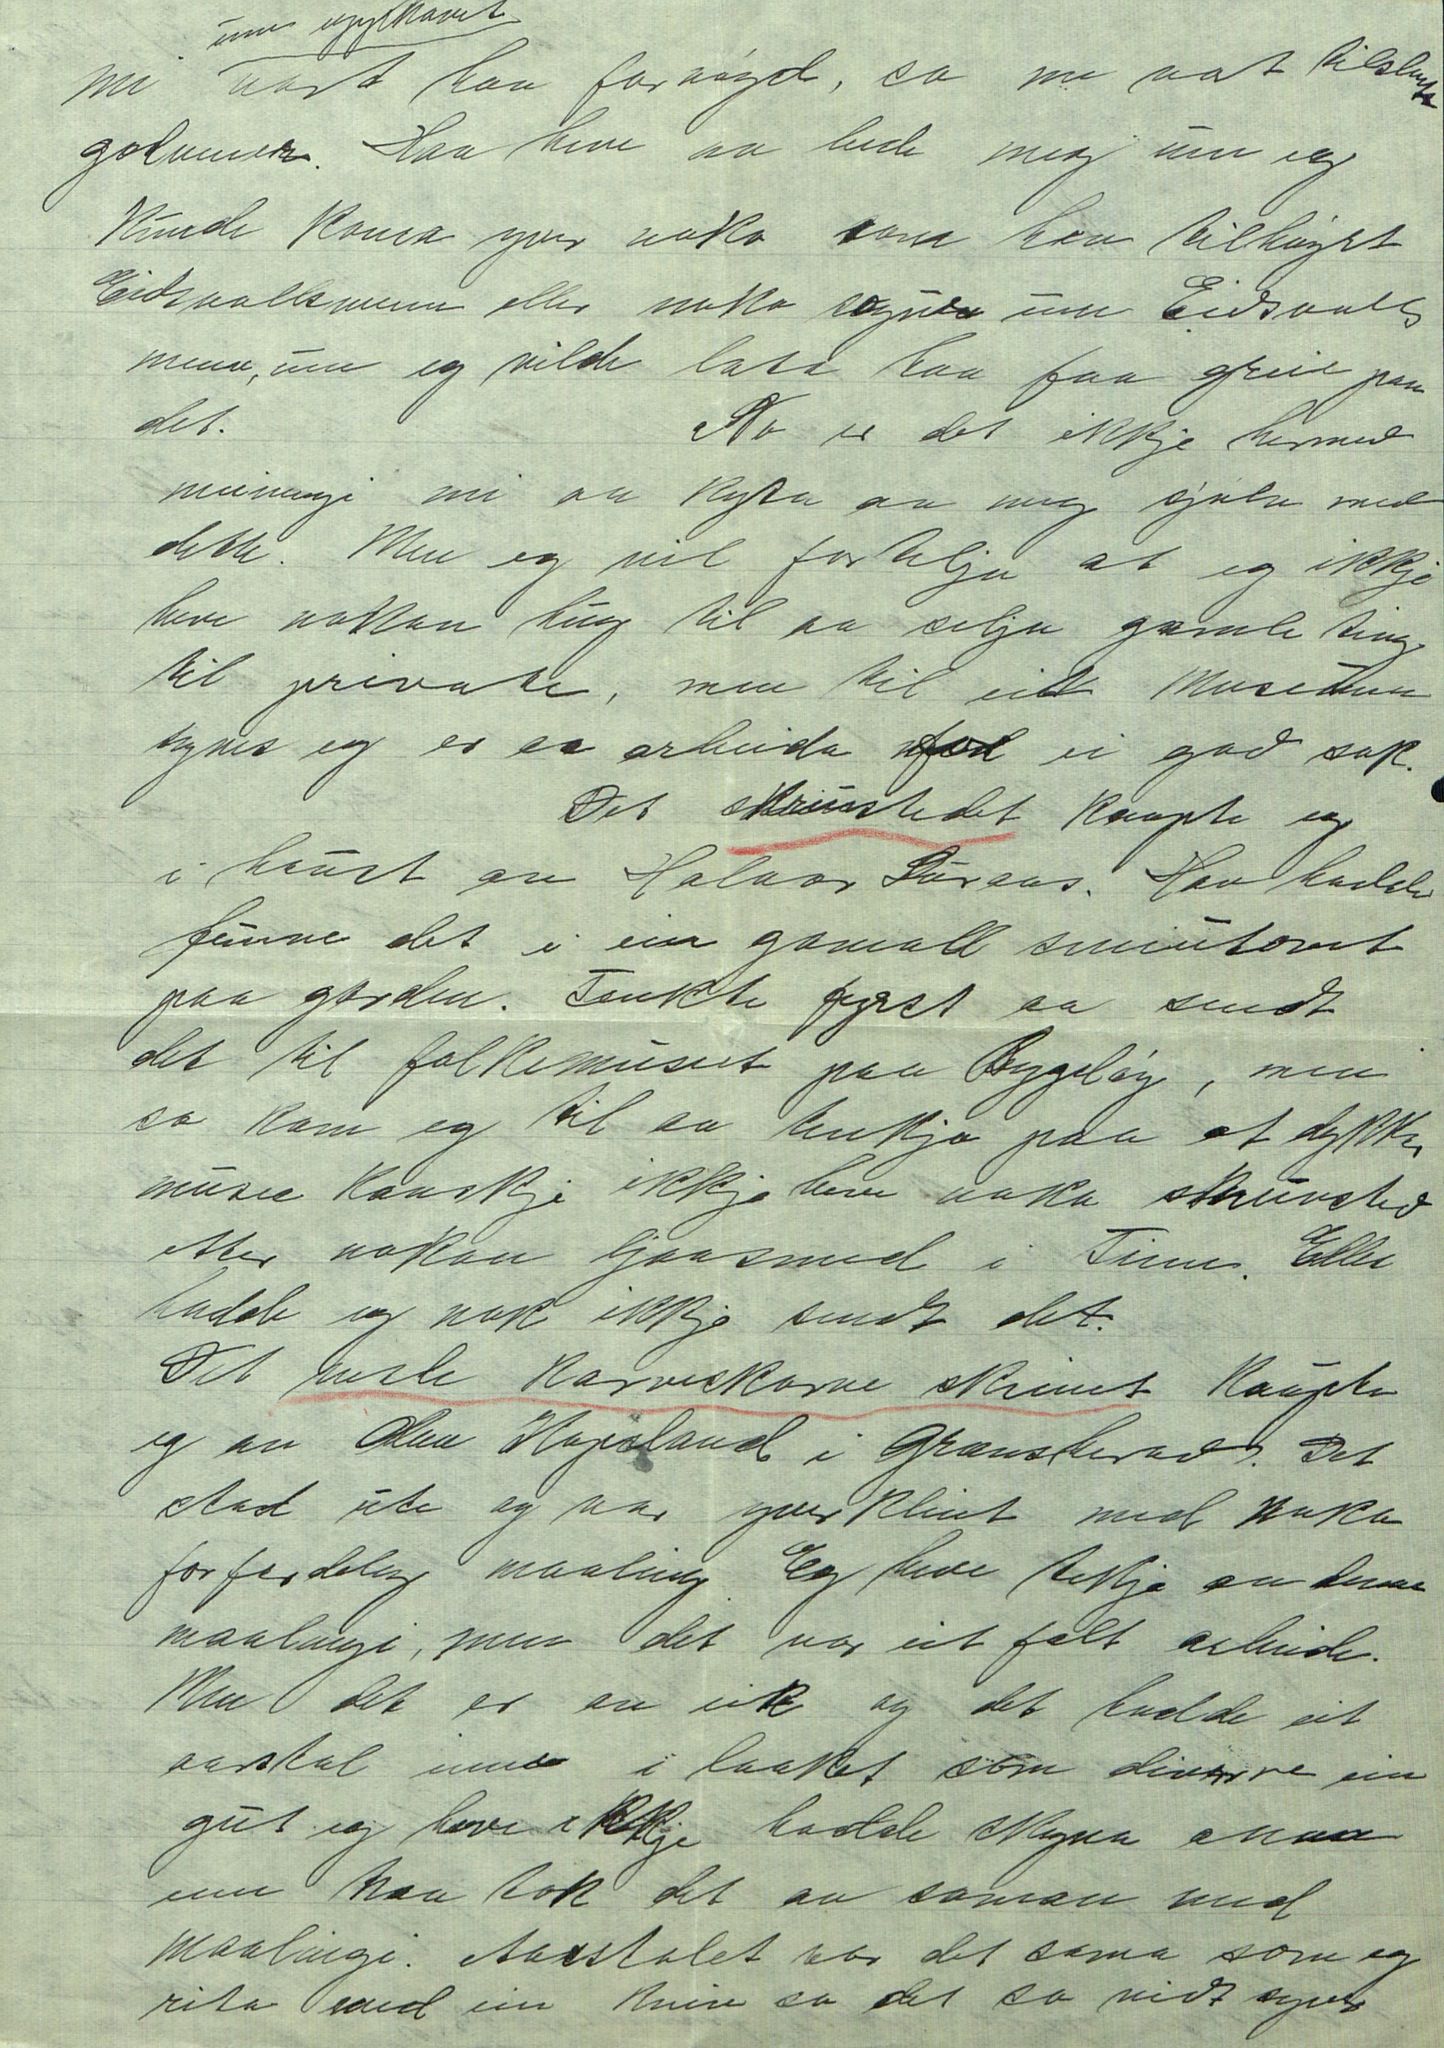 um uppskovet
mi vart han fornögd, so me vat tilslut
godvener. Han heve aa bede meg um eg
kunde koma yver noko som hev tilhöyrt
Eidsvollsmenn eller noko sogner um Eidsvolls
menn, um eg vilde lata han faa greie paa
det. No er det ikkje hermed
meiningi mi aa kyta av meg sjölv med
dette. Men eg vil fortelja at eg ikkje
heve nokon hug til aa selja gamle ting
til private, men til eit Museum
tynes eg er aa arbeida for ei god sak.
Det skruvstedet kaupte eg
i haust av Halvor Būraas. Han hadde
funne det i ein gomall smiutomt
paa garden. Tenkte fyrst aa sendt
det til folkemuseet paa Bygdöy, men
so kom eg til aa tenkja paa at dykker
musee kanskje ikkje heve noko skruvsted
etter nokon ljaasmed i Tinn. Elles
hadde eg nok ikkje sendt det.
Det vesle karveskorne skrinet kaupte
eg av Olav Hapsland i Gransherad. Det
stod ute og var yverklint med noko
forferdeleg maaling. Eg heve tekje av denne
maalingi, men det var eit fælt arbeide.
Men det er av eik og det hadde eit
aarstal inne i loaket som diverre ein
gut eg heve ikkje hadde skyna anna
enn han tok det av saman med
maalingi. Aarstalet var det sama som eg
rita med ein kniv so det so vidt syner